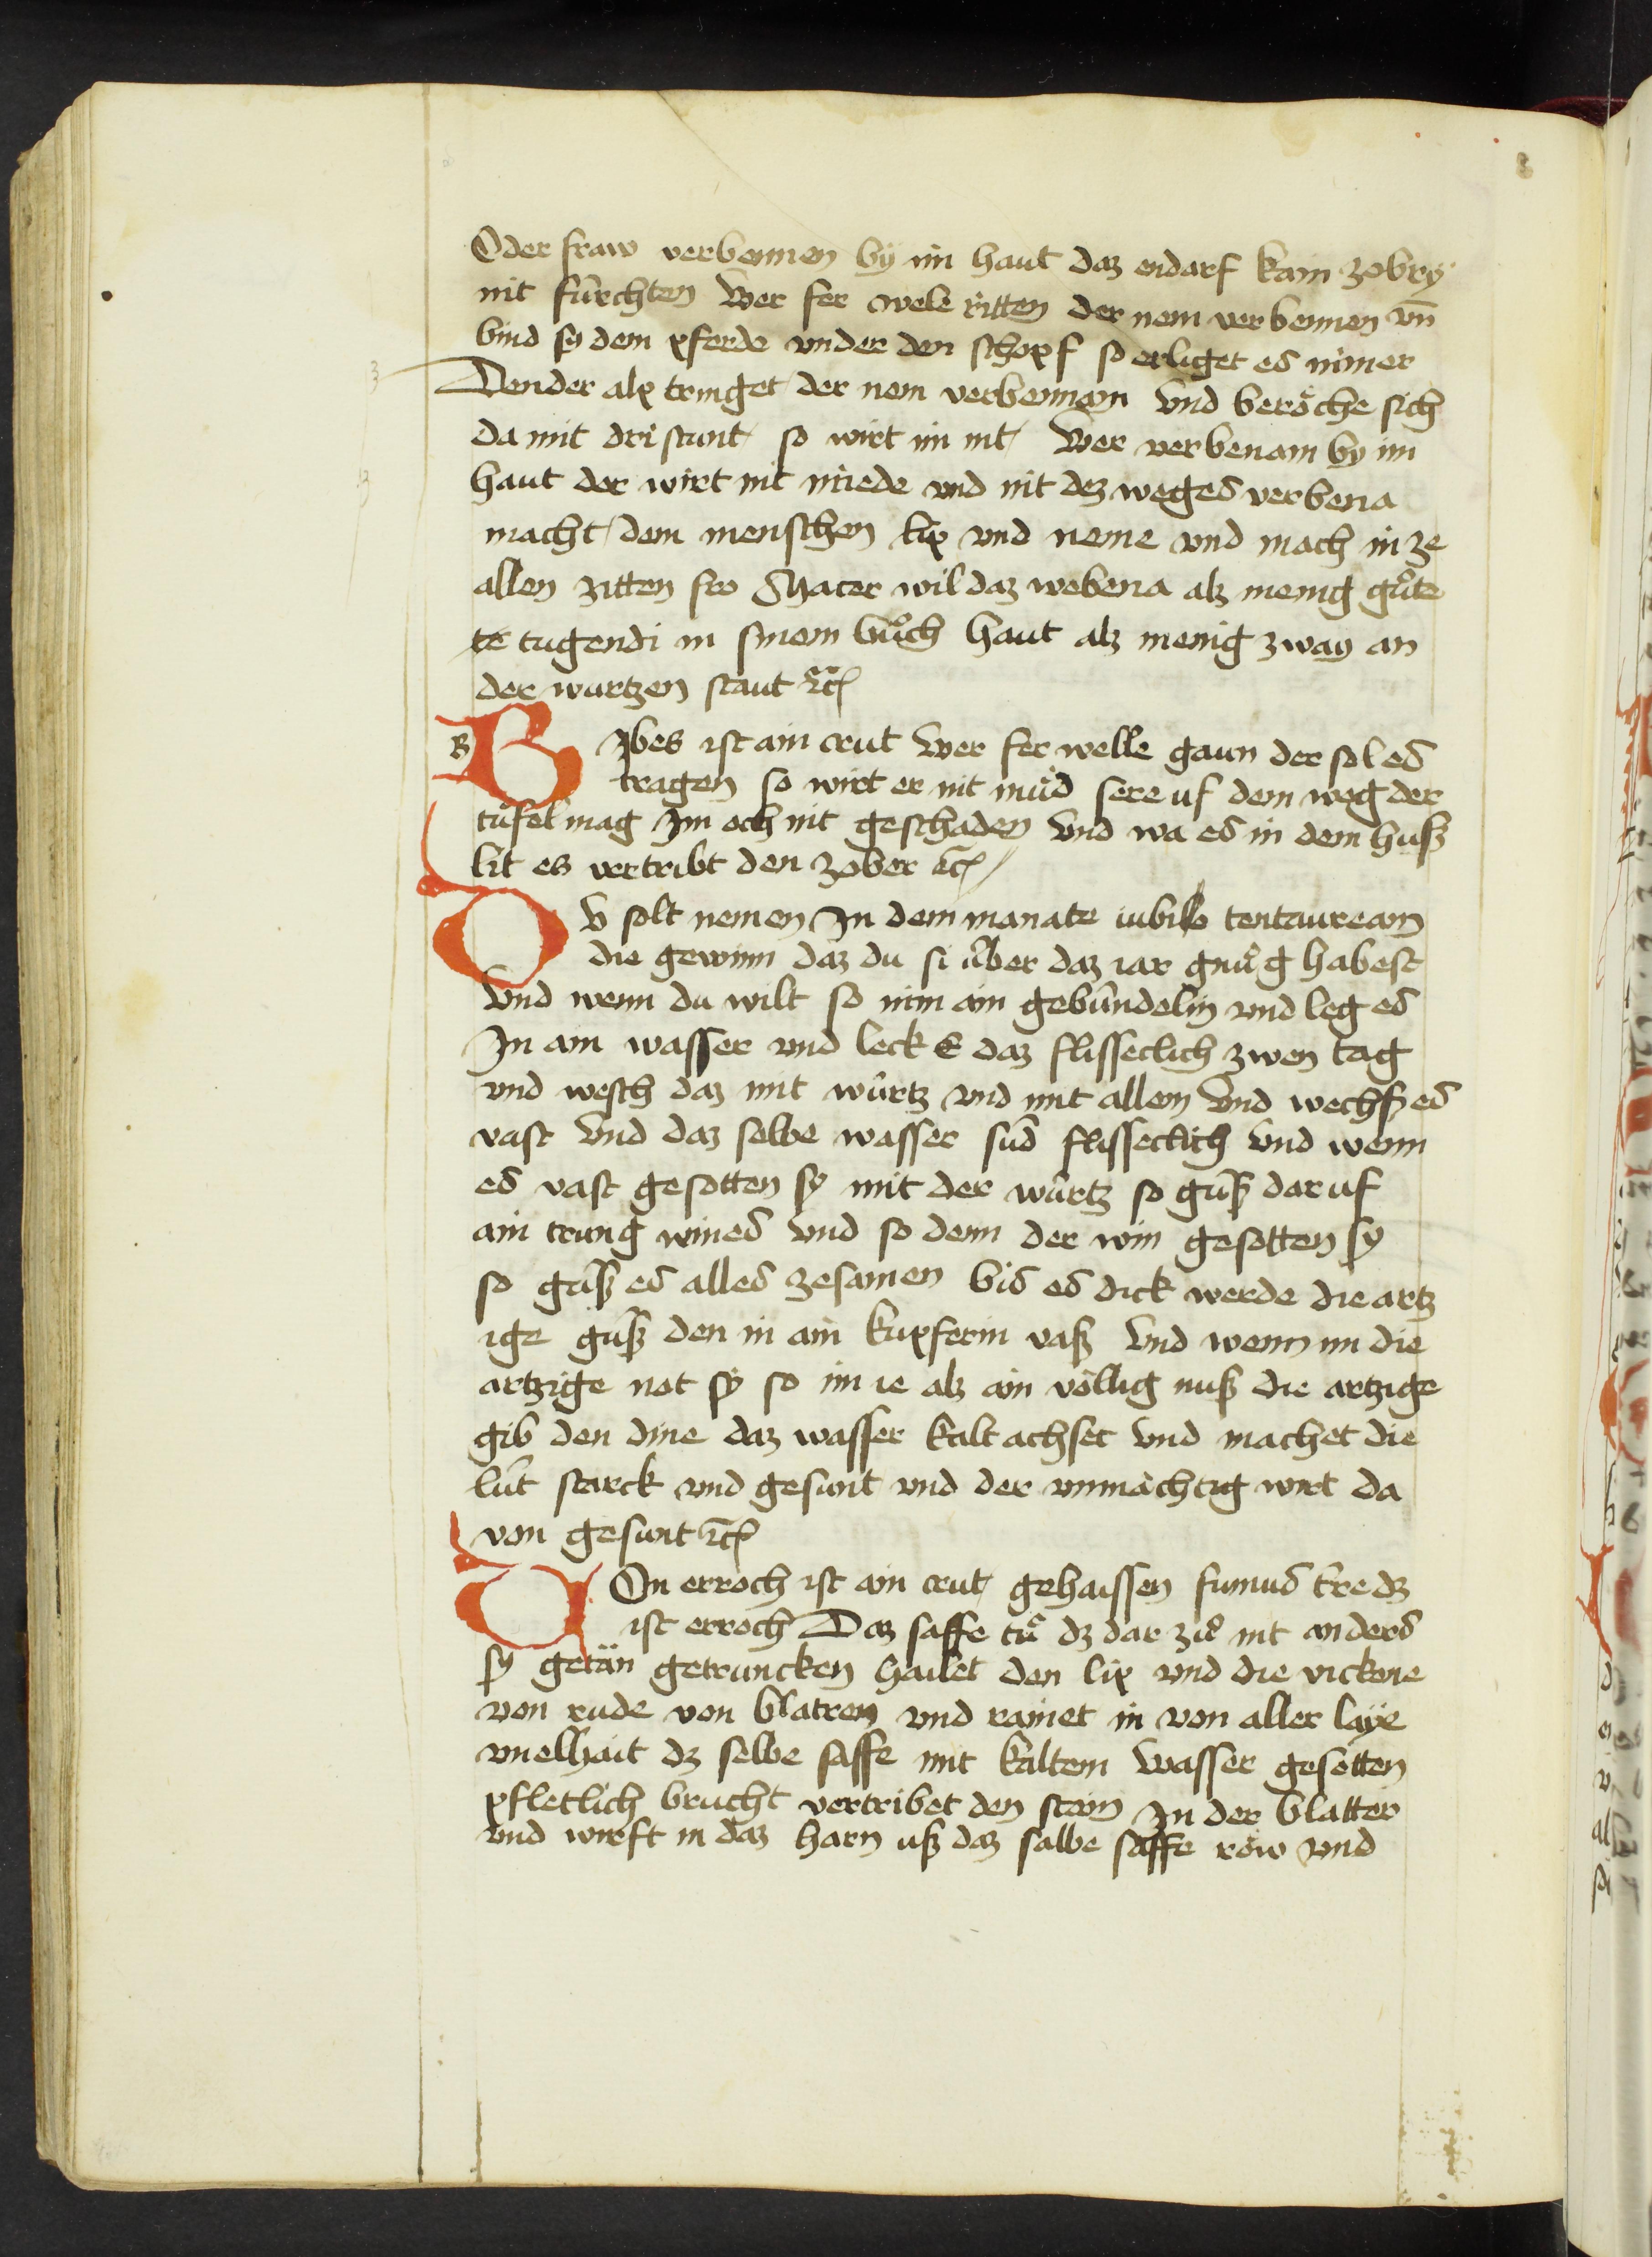 Oder fraw verbennen by im haut daz endarf kain zobry
nit fürchten Wer fer welle ritten der nem verbennen vn̄
bind sy dem pferde vnder den schopf so erliget es nimer
Den der alp tringet der nem verbennam Vnd beröche sich
da mit dristunt so wirt im nit Wer verbenam by im
haut der wirt nit müede vnd nit dez weges verbena
macht dem menschen lip vnd neme vnd mach in ze
allen zitten fro Macer wil daz webena alz menig gůte
te tugendi in sinem bůch haut alz menig zway an
der wurtzen staut ꝛc̄
B
BJbes ist ain crut Wer fer welle gaun der sol es
tragen so wirt er nit müd sere uf dem weg der
tüfel mag Jm och nit geschaden Vnd wa es in dem huß
lit es vertribt den zober ꝛc̄
DV solt nemen Jn dem manate iubilo tentauream
die gewinn daz du si über daz iar gnůg habest
Vnd wenn du wilt so nim ain gebündelin vnd leg es
Jn ain wasser vnd leck E daz flisseclich zwen tag
vnd wesch daz mit würtz vnd mit allem Vnd wechß es
vast Vnd daz selbe wasser süd flisseclich Vnd wenn
es vast gesotten sy mit der würtz so güß dar uf
ain trung wines Vnd so denn der win gesotten sy
so güß es alles zesamen bis es dick werde die artz
ige güß den in ain kupferin vaß Vnd wenn im die
artzige not sy so im ie alz ain völlig nuß die artzige
gib den dine daz wasser kalt achset Vnd machet die
lüt starck vnd gesunt vnd der vnmächtig wirt da
von gesunt ꝛc̄
VOn erroch ist ain crut gehaissen fumus tre dz
ist erroch Daz saffe tů dz dar zů nit anders
sy getän getruncken hailet den lip vnd die vickene
von rude von blatren vnd rainet in von aller laye
vnelhait dz selbe saffe mit kaltem Wasser gesotten
pfletlich brucht vertribet den stein Jn der blatter
vnd wirft in daz harn uß daz salbe saffe röw vnd